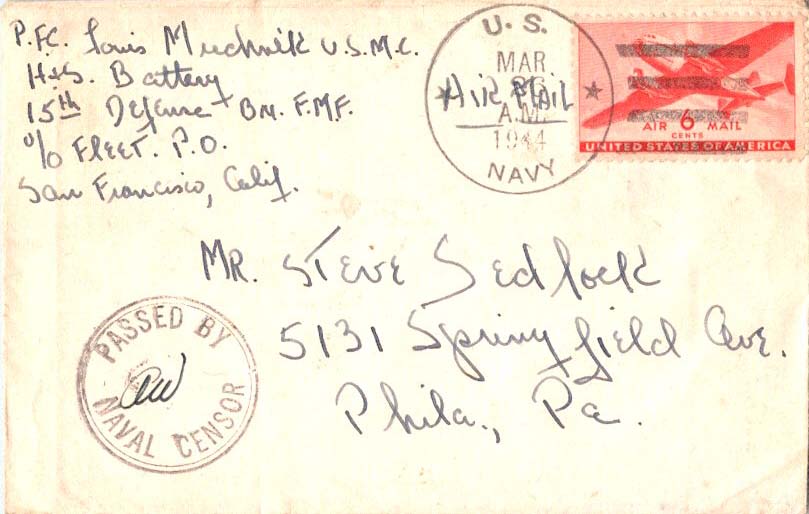 P.F.C. Louis Muchnik U.S.M.C.
H+S. Battery
15th Defense Bn. F.M.F.
c/o FLEET. P.O.
San Francisco, Calif.
U. S.
MAR
A.M.
1944
NAVY
AIR MAIL
AIR 6 MAIL
CENTS
UNITED STATES OF AMERICA
MR. STEVE Sedlock
5131 Springfield Ave.
Phila., Pa.
PASSED BY
NAVAL CENSOR